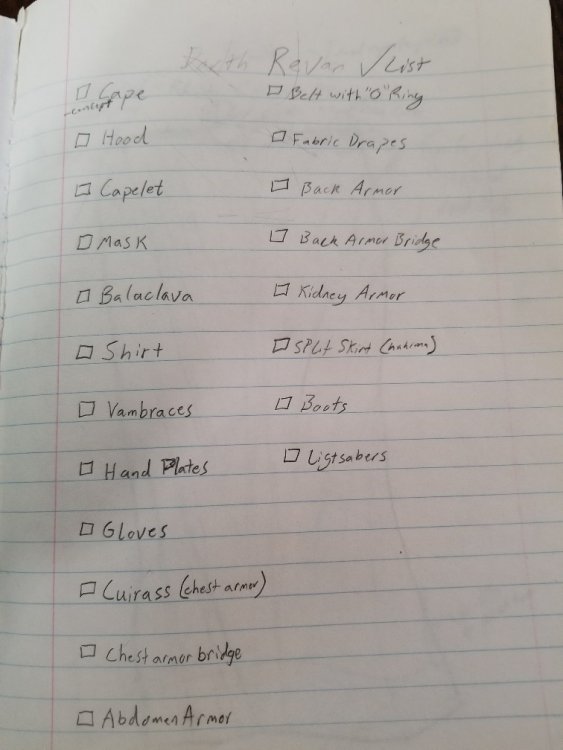 Darth Revan ✓List
☐ Cape
concept
☐ Hood
☐ Capelet
☐ Mask
☐ Balaclava
☐ Shirt
☐ Vambraces
☐ Hand Plates
☐ Gloves
☐ Cuirass (chest armor)
☐ Chest armor bridge
☐ Abdomen Armor
☐ Belt with "O" Ring
☐ Fabric Drapes
☐ Back Armor
☐ Back Armor Bridge
☐ Kidney Armor
☐ Split Skirt
☐ Boots
☐ Ligtsabers